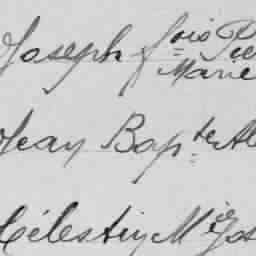 Joseph fois Pie
Marie
Jean Bapte Al
Célestin Mie Jos